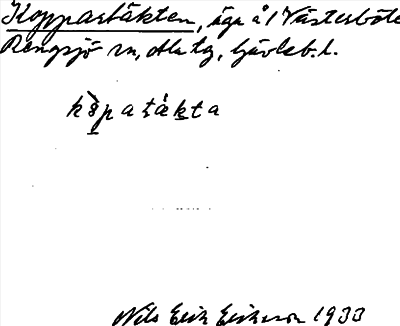 Koppartäkten, äga å 1 Västerböle
Rengsjö sn, Ala tg, Gävleb. l.
kòpatäkta
Nils Erik Eriksson 1933